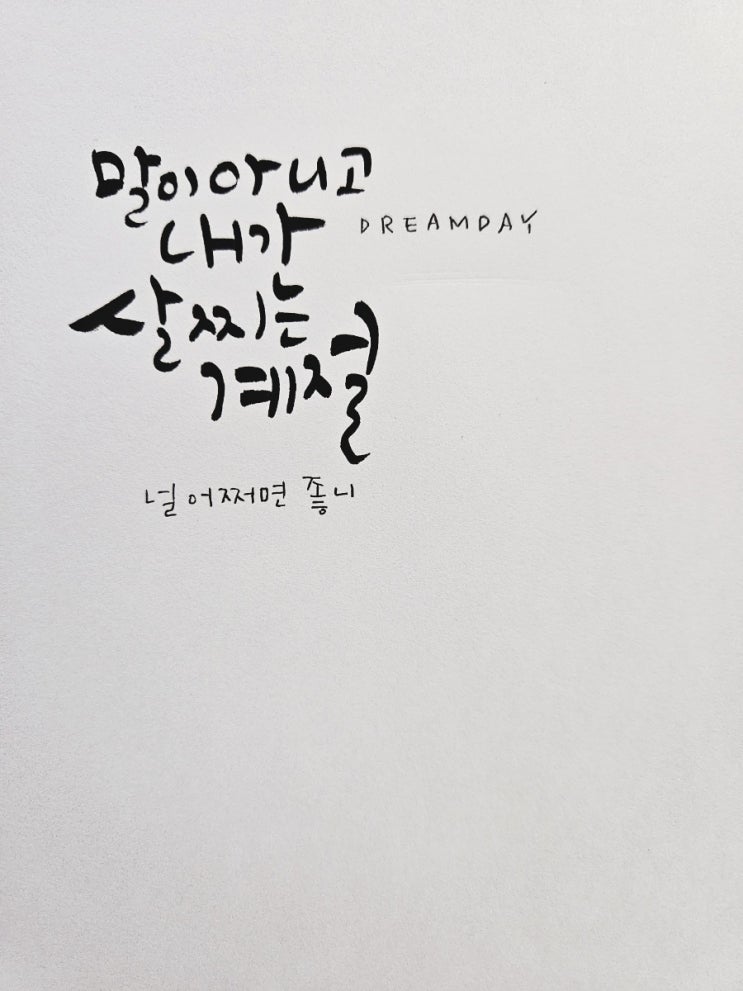 말이 아니고
내가
DREAMDAY
살찌는
계절
널 어쩌면 좋니